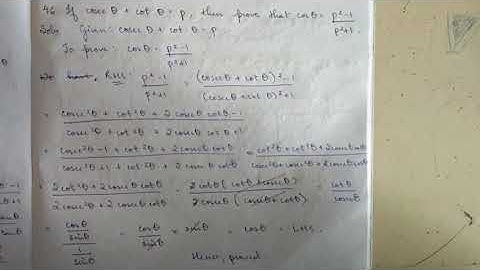 46 If cosec θ + cot θ = p, then prove that cosθ = p²-1/p²+1.
Soln Given: cosec θ + cot θ = p
To prove: cosθ = p²-1/p²+1
RHS: p²-1/p²+1 = (cosecθ + cot θ)²-1/(cosecθ + cot θ)²+1
= cosec²θ + cot²θ + 2 cosecθ cotθ -1/cosec²θ + cot²θ + 2 cosecθ cotθ +1
= cosec²θ -1 + cot²θ + 2cosecθ cotθ/cosec²θ +1 + cot²θ + 2 cosecθ cotθ = cot²θ + cot²θ + 2cosecθ cotθ/cosec²θ + cosec²θ + 2cosecθ cotθ
= 2cot²θ + 2 cosecθ cotθ/2cosec²θ + 2 cosecθ cotθ = 2 cotθ (cotθ + cosecθ)/2 cosecθ (cosecθ + cotθ) = cotθ/cosecθ
= cosθ/sinθ/1/sinθ = cosθ/sinθ × sinθ = cosθ = LHS.
Hence, proved